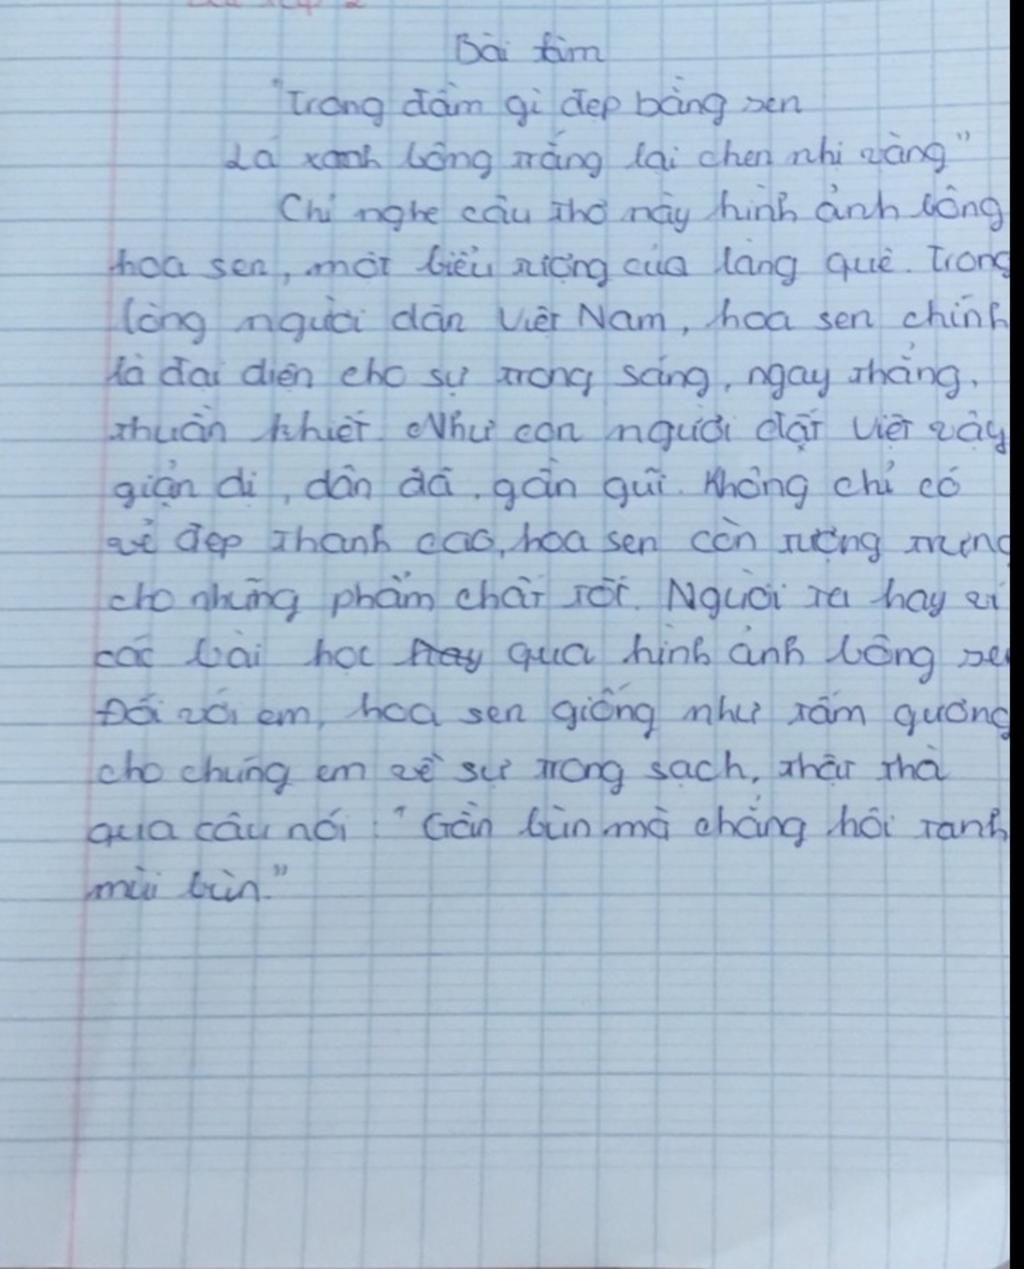 Bài làm
"Trong đầm gì đẹp bằng sen
Lá xanh bông trắng lại chen nhị vàng"
Chỉ nghe câu thơ này hình ảnh bông
hoa sen, một biểu tượng của làng quê. Trong
lòng người dân Việt Nam, hoa sen chính
là đại diện cho sự trong sáng, ngay thẳng,
thuần khiết. Như con người đất Việt vậy
giản dị, dân dã, gần gũi. Không chỉ có
vẻ đẹp thanh cao, hoa sen còn tượng trưng
cho những phẩm chất tốt. Người ta hay ví
các bài học qua hình ảnh bông
Đối với em, hoa sen giống như tấm gương
cho chúng em về sự trong sạch, thật thà
qua câu nói: "Gần bùn mà chẳng hôi tanh
mùi bùn."